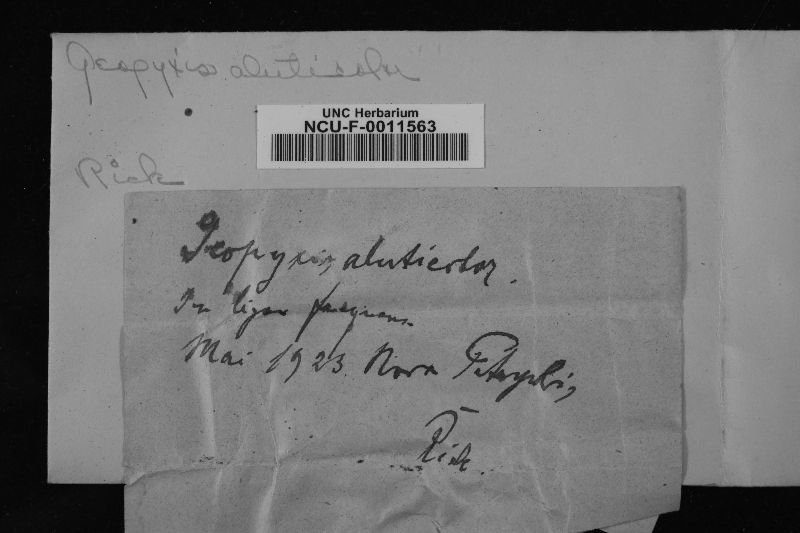 Geopyxis aluticolor
UNC Herbarium
NCU-F-0011563
Rick
Geopyxis aluticolor.
In ligno
Mai 1923. Nova Petropolis,
Rick.